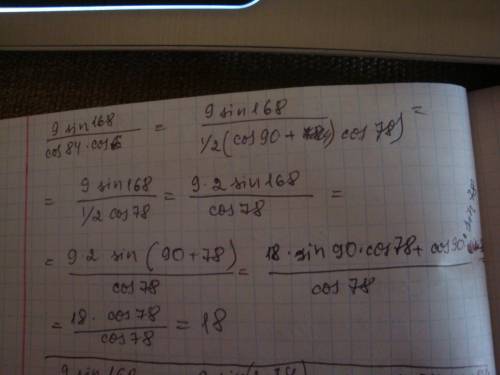 9 sin168 / cos84·cos6 = 9 sin168 / 1/2(cos90 + cos78) =
= 9 sin168 / 1/2 cos78 = 9·2 sin168 / cos78 =
= 9·2 sin(90+78) / cos78 = 18·sin90·cos78 + cos90 / cos78
= 18·cos78 / cos78 = 18
9 sin168